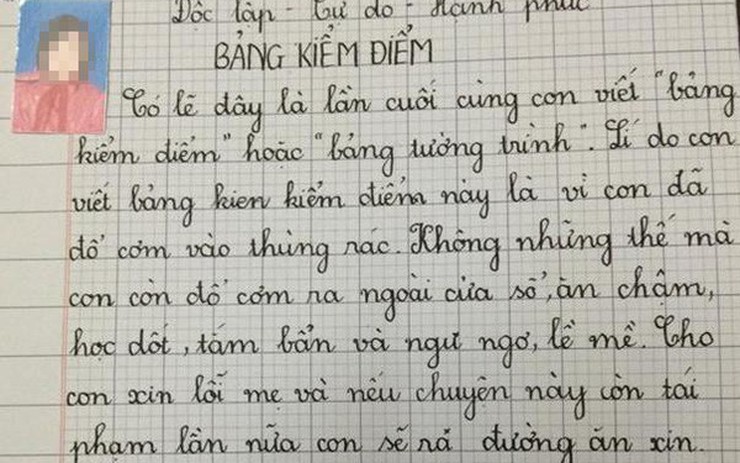 Độc lập - Tự do - Hạnh phúc
BẢNG KIỂM ĐIỂM
Có lẽ đây là lần cuối cùng con viết "bảng
kiểm điểm" hoặc "bảng tường trình". Lí do con
viết bảng kien kiểm điểm này là vì con đã
đổ cơm vào thùng rác. Không những thế mà
con còn đổ cơm ra ngoài cửa sổ, ăn chậm,
học dốt, tắm bẩn và ngu ngơ, lề mề. Cho
con xin lỗi mẹ và nếu chuyện này còn tái
phạm lần nữa con sẽ rả đường ăn xin.